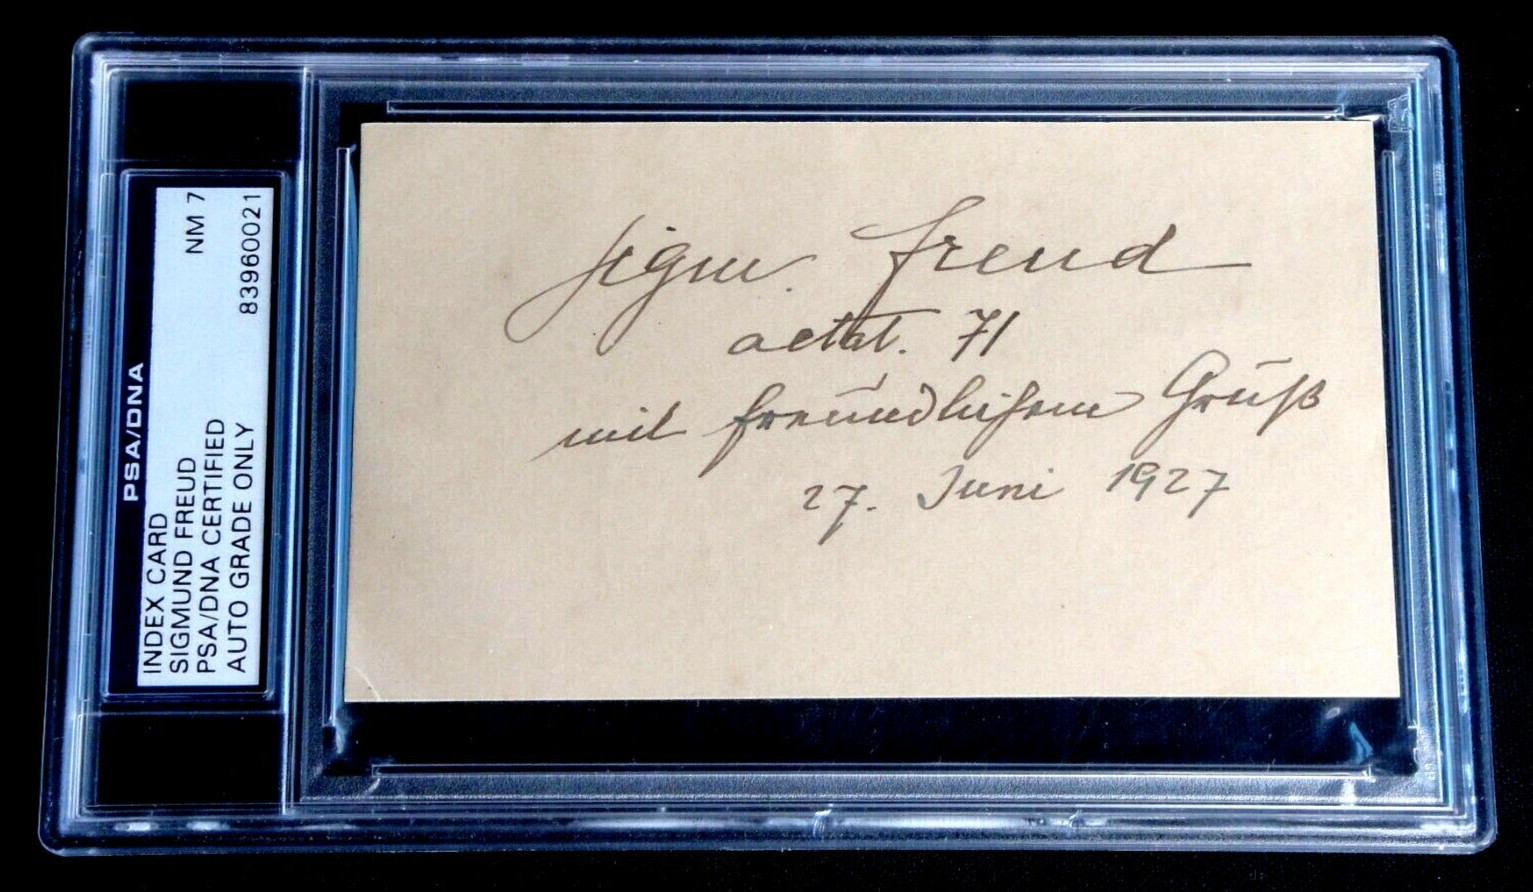 PSA/DNA
INDEX CARD NM 7
SIGMUND FREUD
PSA/DNA CERTIFIED
AUTO GRADE ONLY 83960021
Sigm. Freud
aetat. 71
mit freundlichem Gruß
27. Juni 1927